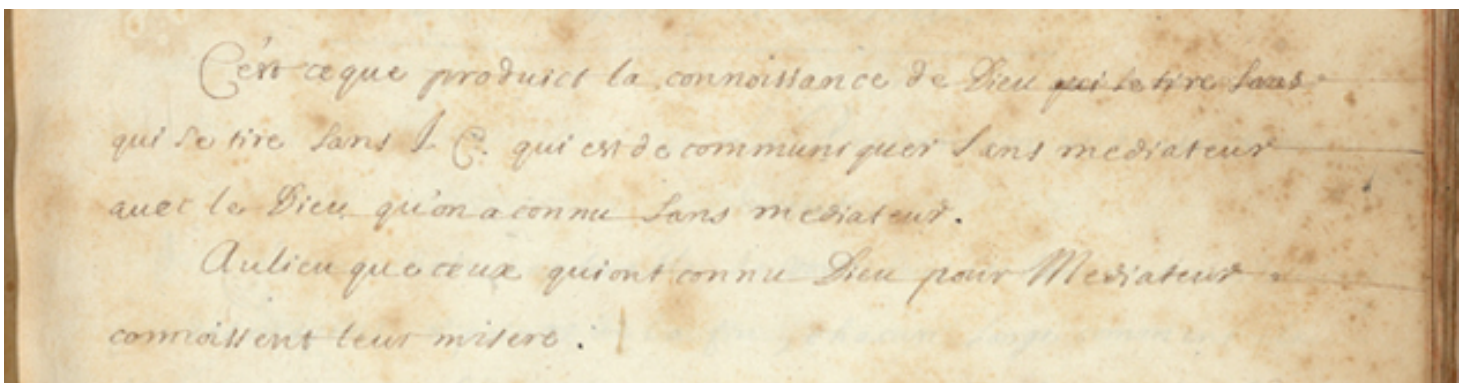 C'est ce que produict la connoissance de Dieu qui se tire sans
qui se tire sans J. C. qui est de communiquer sans mediateur
avec le Dieu qu'on a connu sans mediateur.
Au lieu que ceux qui ont connu Dieu pour Mediateur
connoissent leur misere.